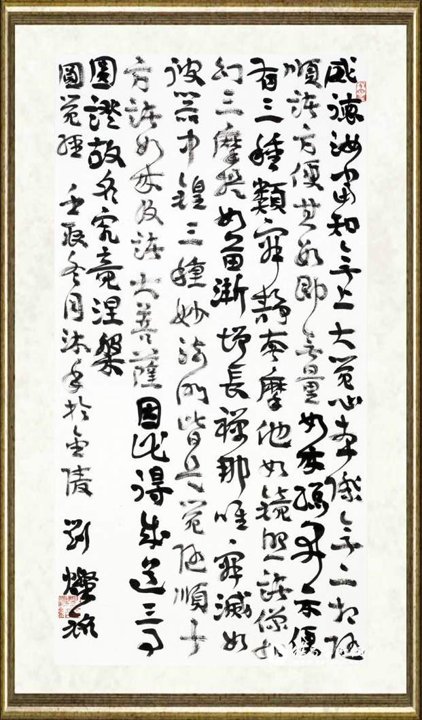 威德汝當知無上大覺心本際無二相隨
順諸方便其數即無量如來總開示便
有三種類寂靜奢摩他如鏡照諸像如
幻三摩提如苗漸增長禪那唯寂滅如
彼器中鍠三種妙法門皆是覺隨順十
方諸如來及諸大菩薩因此得成道三事
圓證故名究竟涅槃
圓覺經 壬辰冬月沐手於金陵 劉燦銘